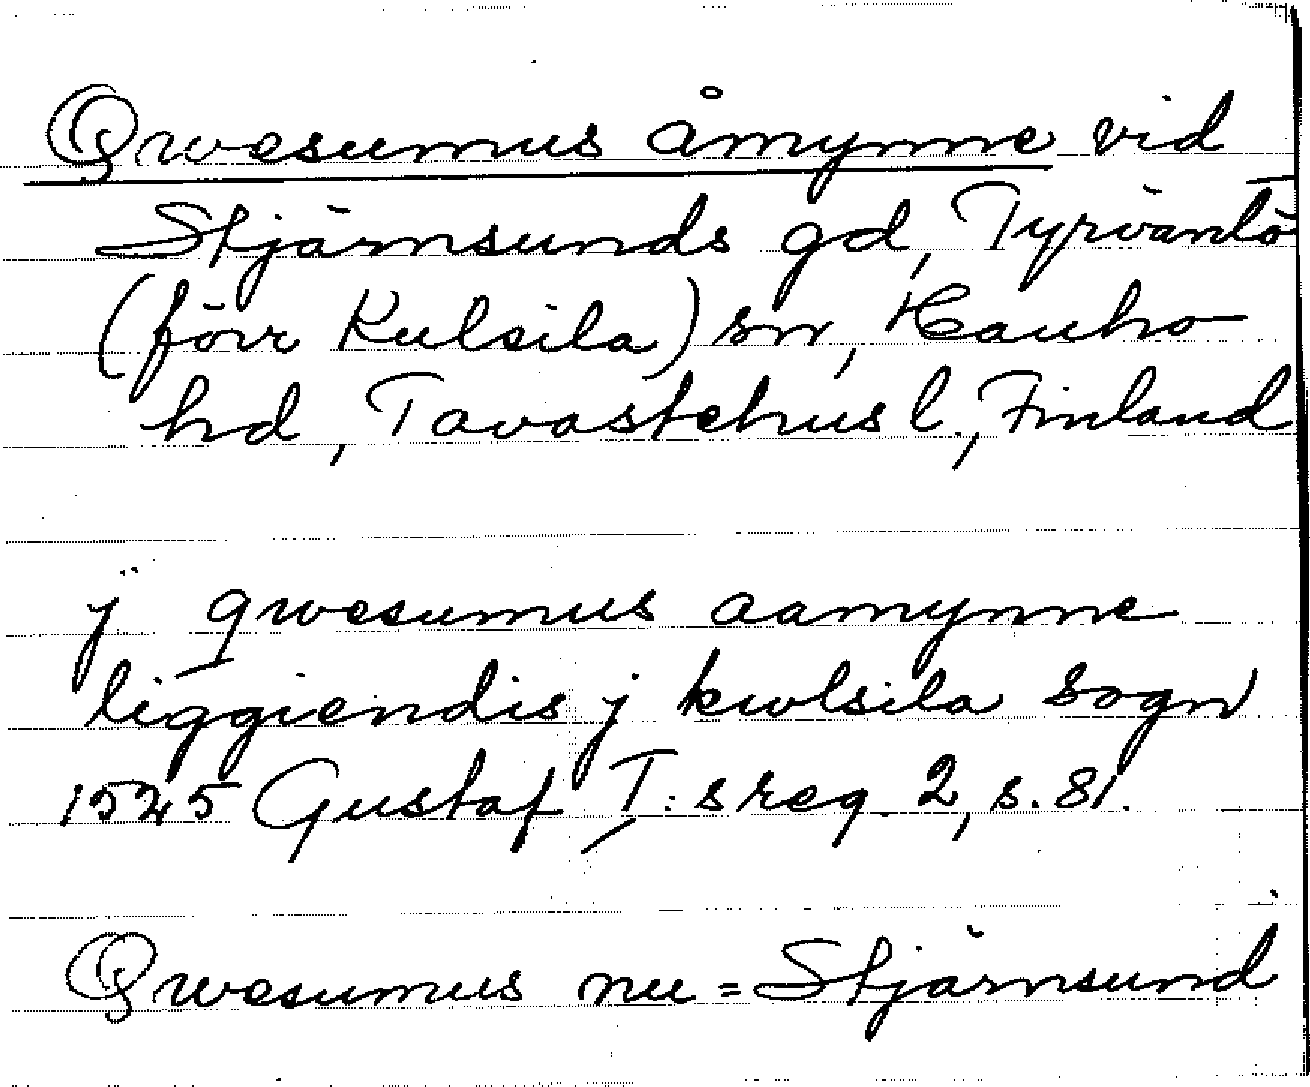 Qwesumus åmynne vid
Stjärnsunds gd, Tyrväntö
(förr Kulsila) sn, Hauho
hd, Tavastehus l., Finland
ÿ qwesumus aamynne
liggiendis j kwlsila sogn
1525 Gustaf I:s reg. 2, s. 81.
Qwesumus nu = Stjärnsund